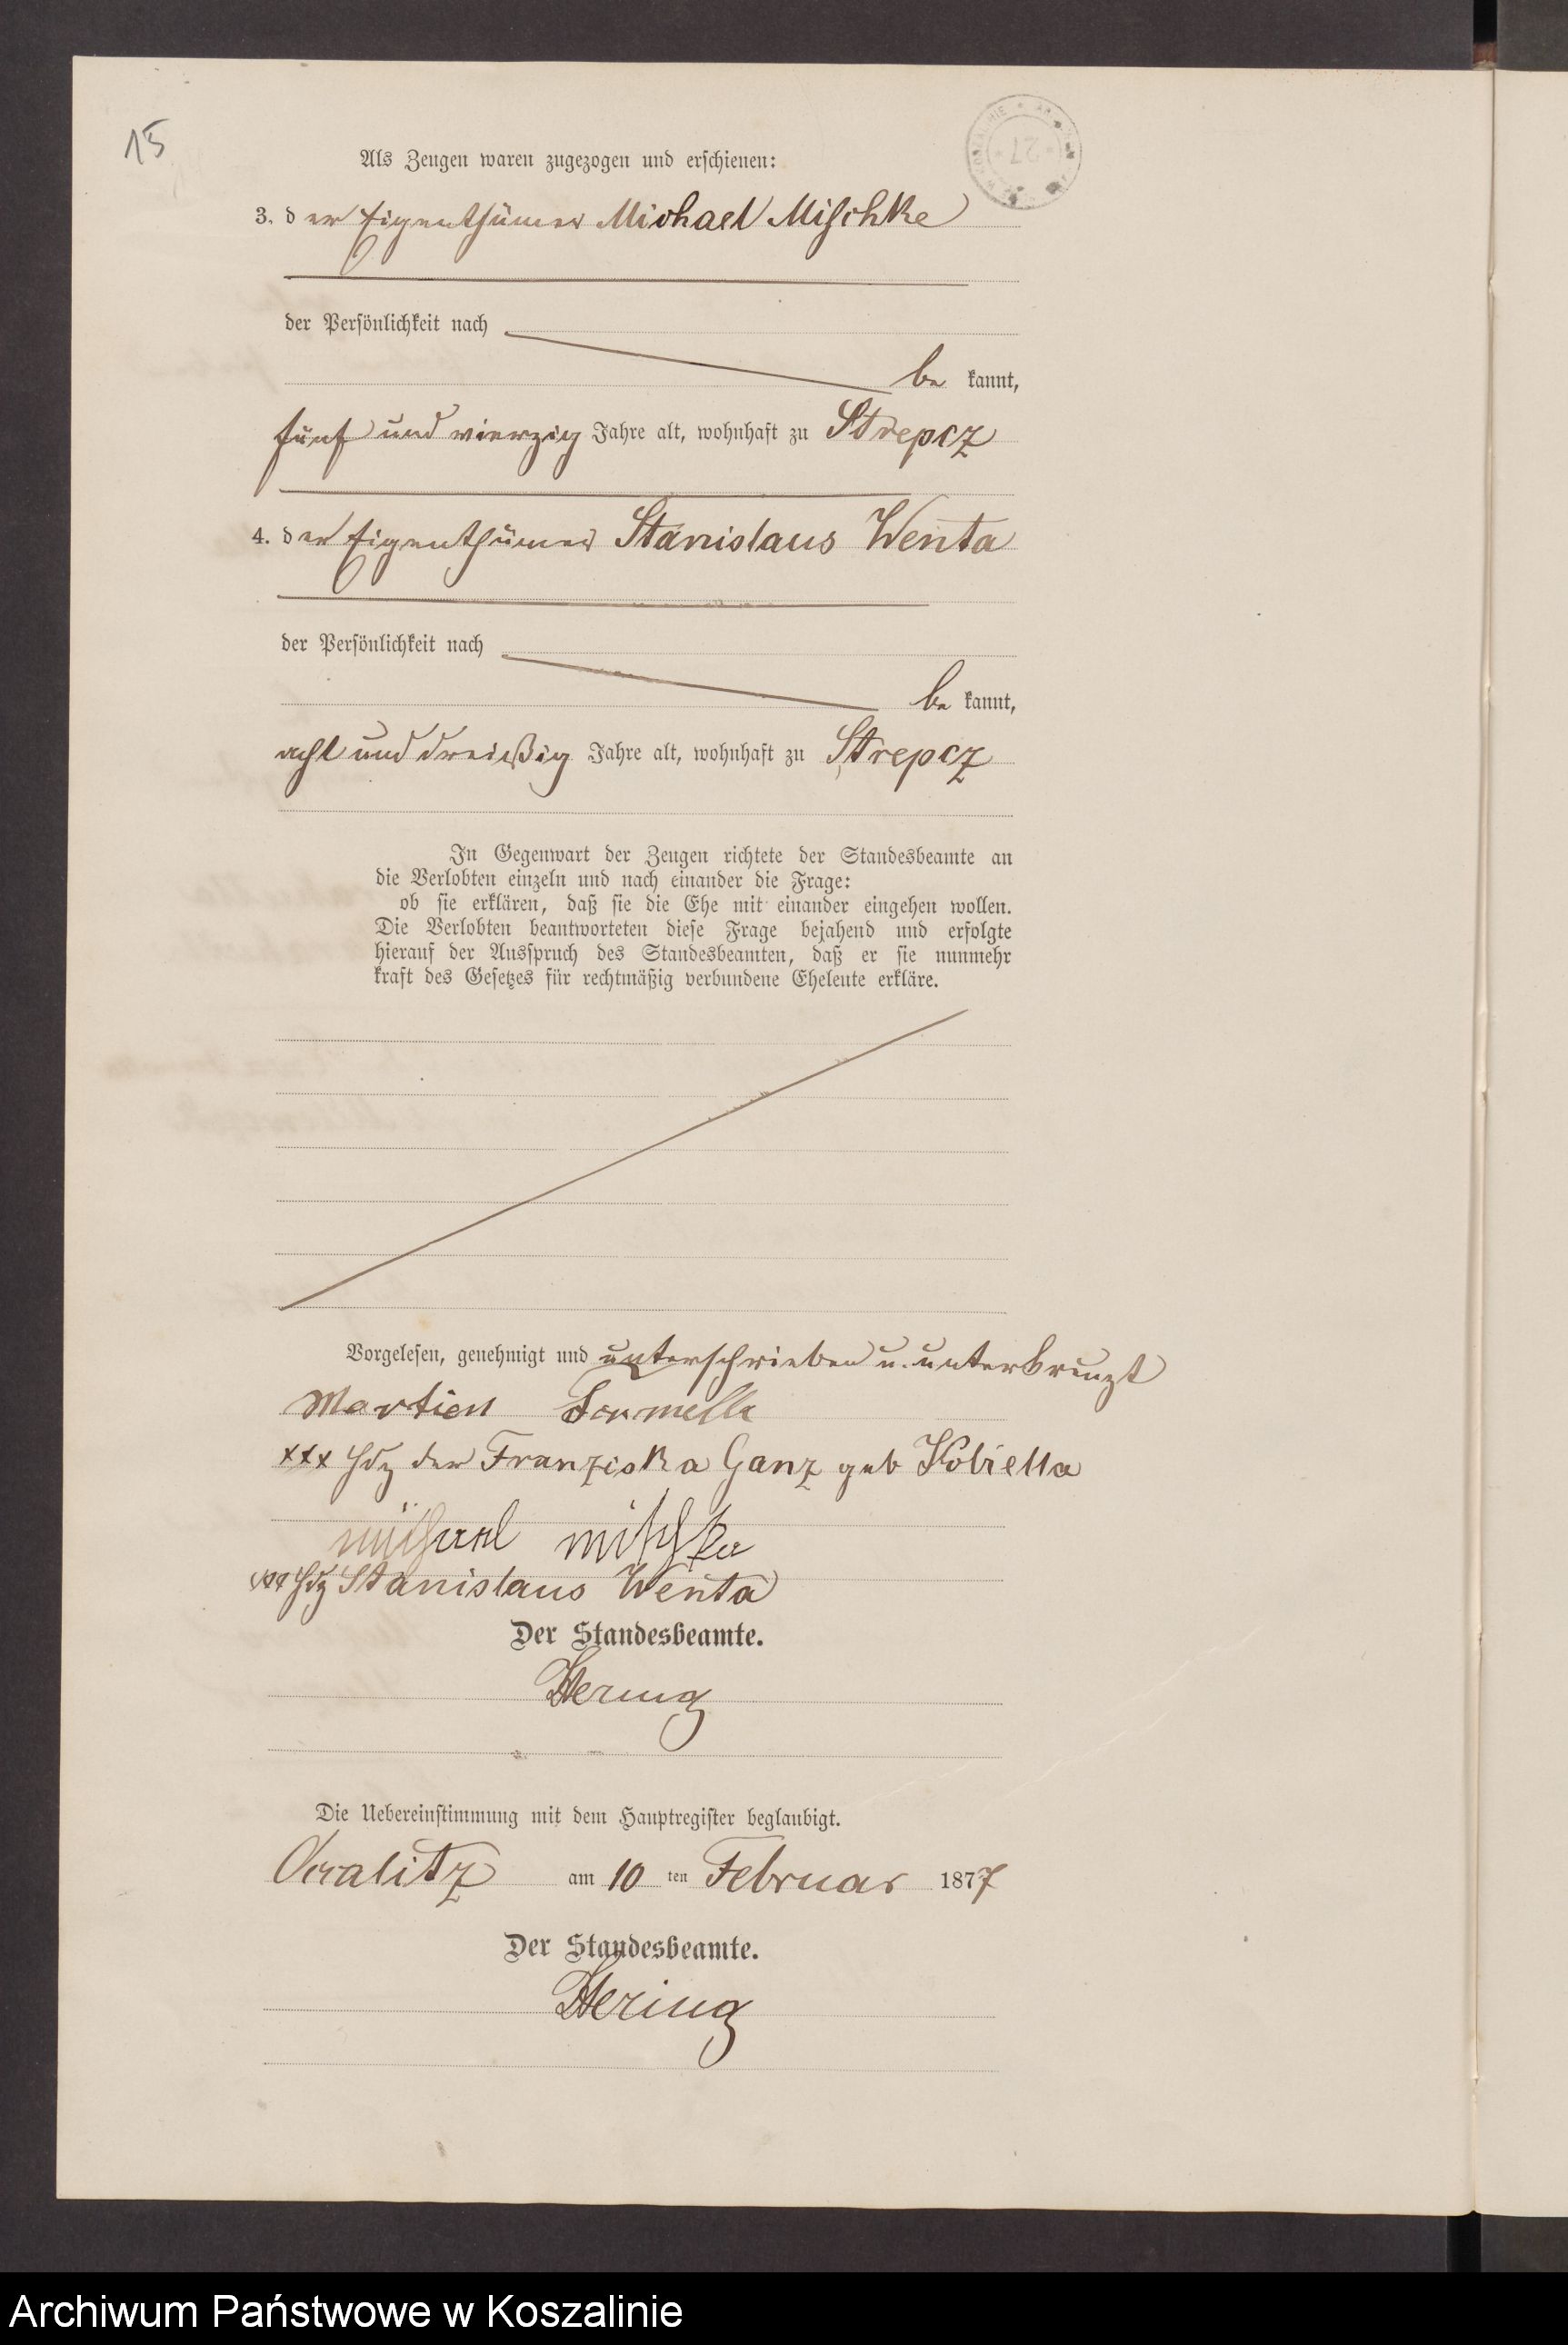 15
Als Zeugen waren zugezogen und erschienen:
3. der Eigenthümer Michael Mischke
der Persönlichkeit nach
be kannt,
fünf und vierzig Jahre alt, wohnhaft zu Strepcz
4. der Eigenthümer Stanislaus Wenta
der Persönlichkeit nach
be kannt,
acht und dreißig Jahre alt, wohnhaft zu Strepcz
In Gegenwart der Zeugen richtete der Standesbeamte an
die Verlobten einzeln und nach einander die Frage:
ob sie erklären, daß sie die Ehe mit einander eingehen wollen.
Die Verlobten beantworteten diese Frage bejahend und erfolgte
hierauf der Ausspruch des Standesbeamten, daß er sie nunmehr
kraft des Gesetzes für rechtmäßig verbundene Eheleute erkläre.
Vorgelesen, genehmigt und unterschrieben u. unterkreuzt
Martien Formella
xxx Hdz der Franziska Ganz geb Kobiella
Michael Mischke
xxx Hdz Stanislaus Wenta
Der Standesbeamte.
Hering
Die Uebereinstimmung mit dem Hauptregister beglaubigt.
am 10 ten Februar 1877
Der Standesbeamte.
Hering
Archiwum Państwowe w Koszalinie